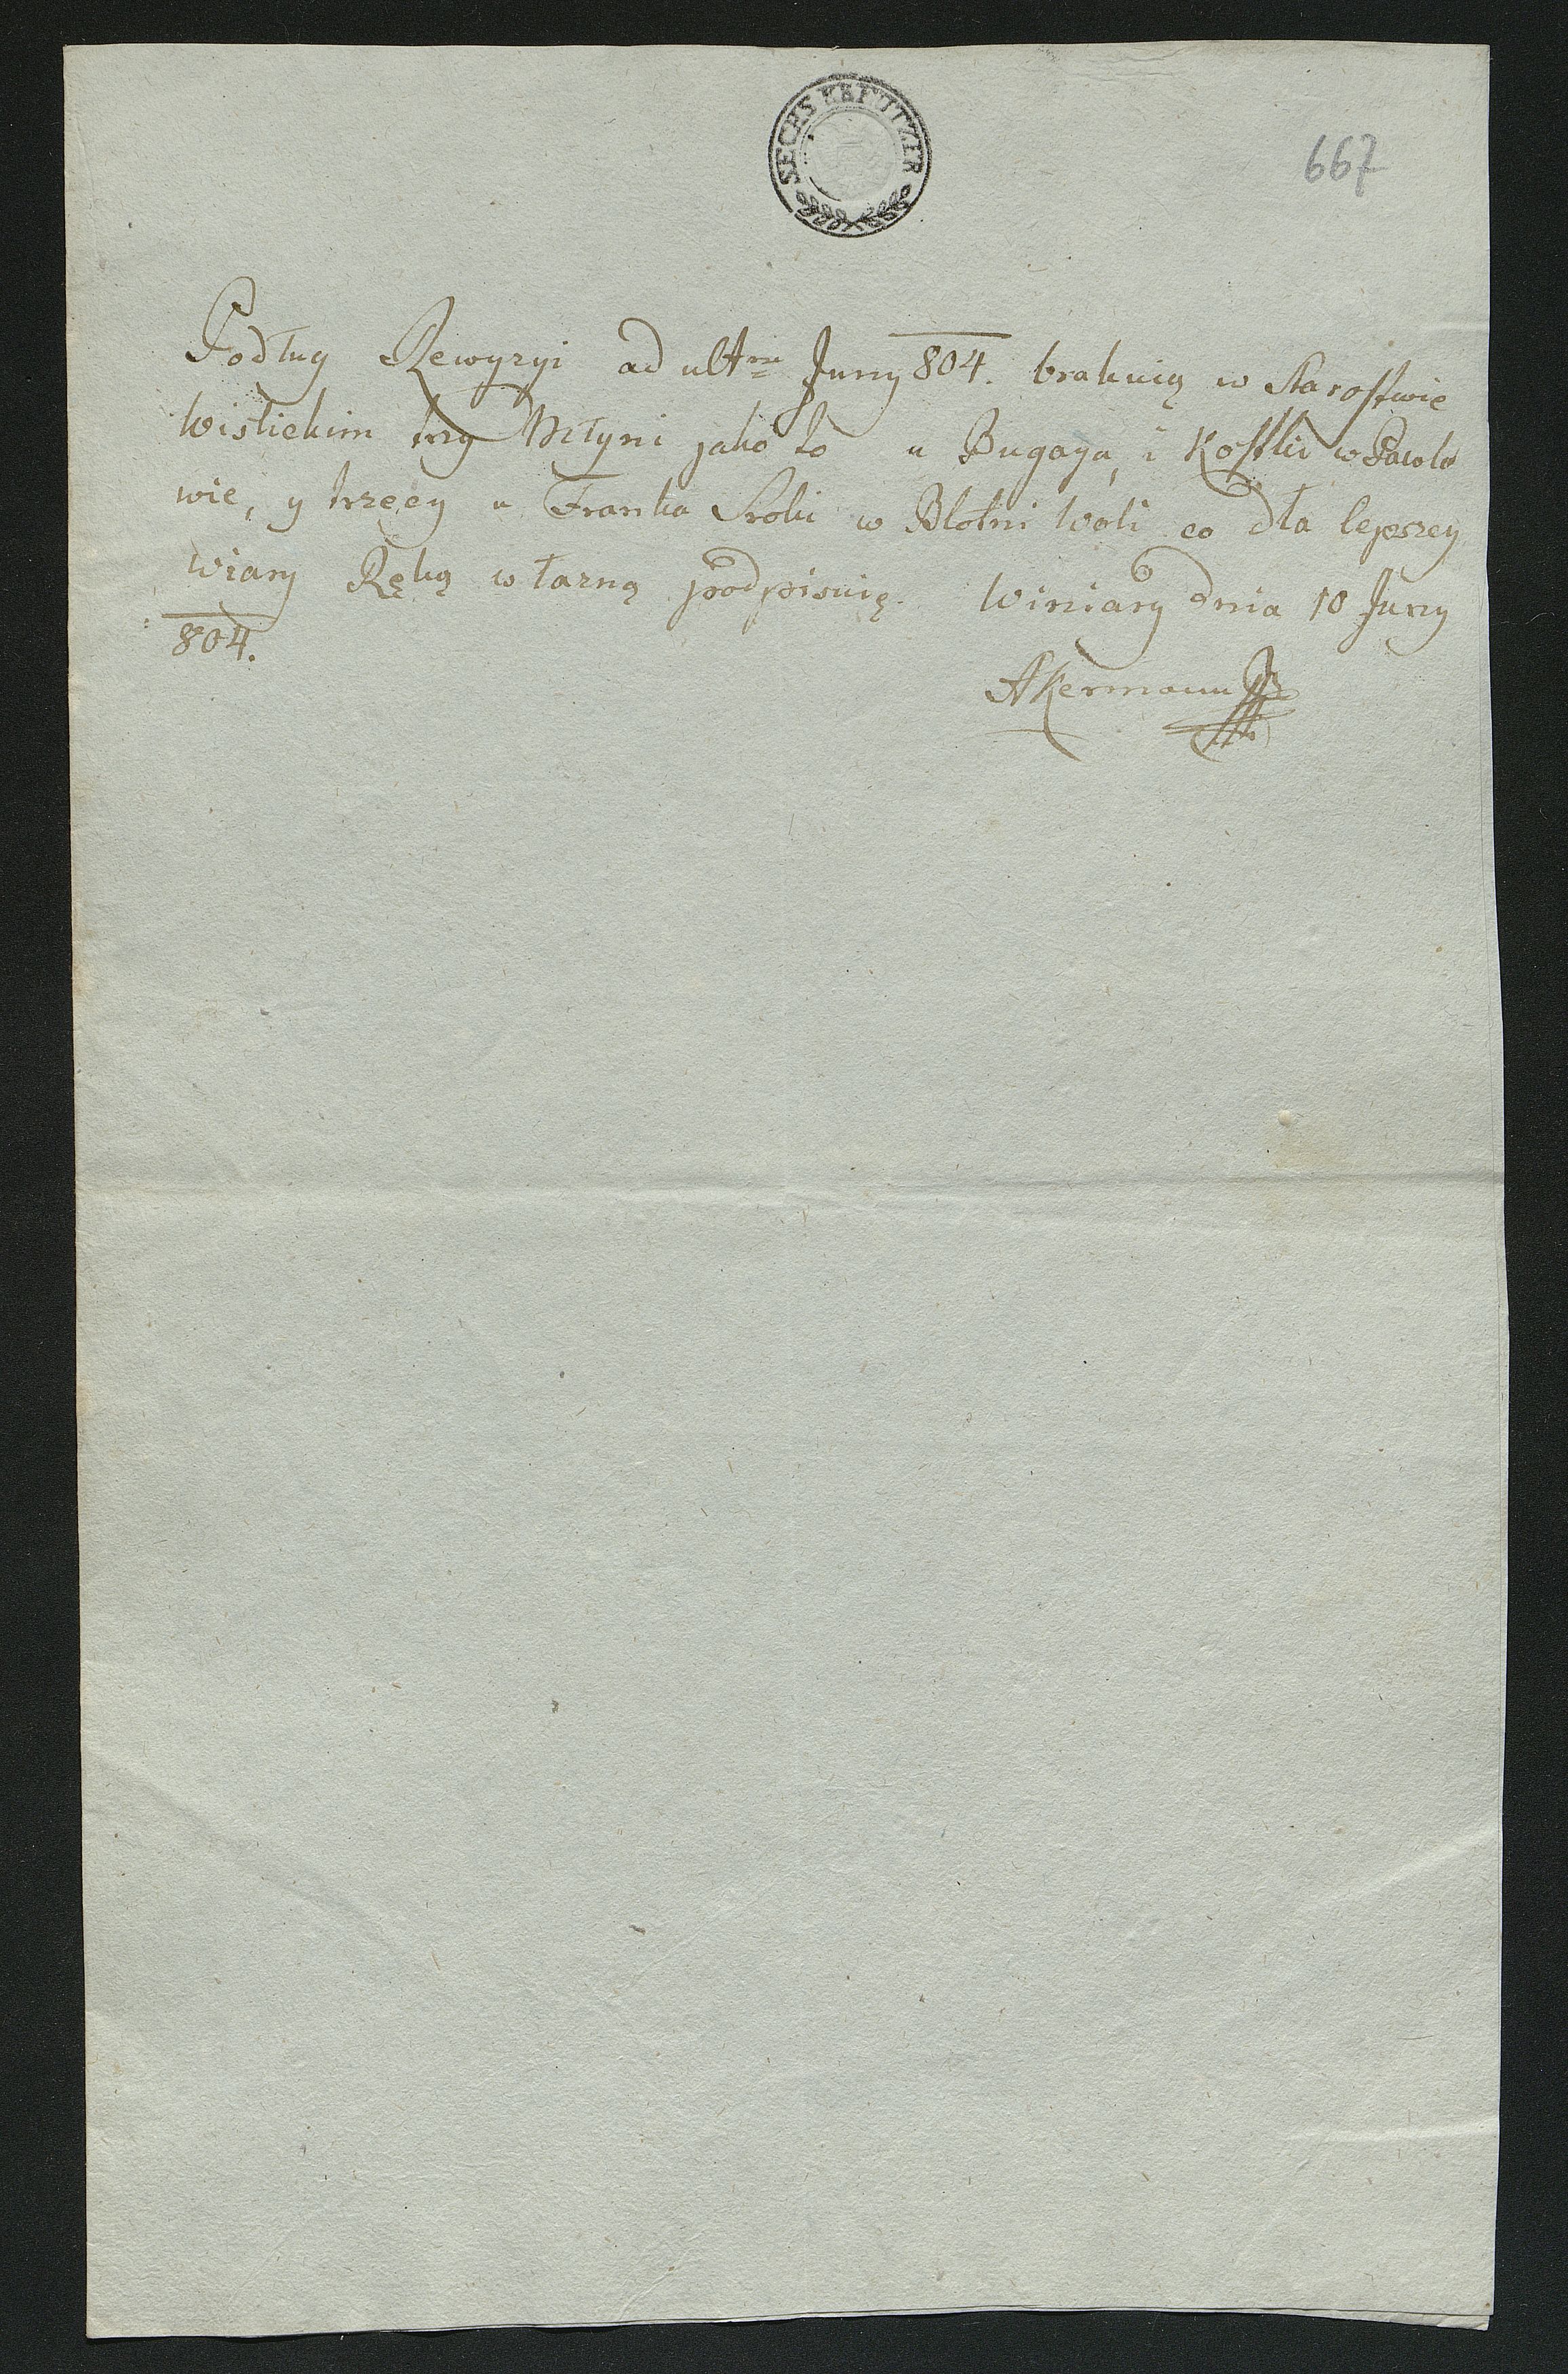 SECHS KREUTZER
667
Podług Rewyzyi ad ultme Juny 804. brakuią w Starostwie
Wislickim trzy Młyni jako to u Bugaya, i Kostki w Pawlo
wie, y trzeci u Franka Sroki w Blotni Woli co dla lepszey
wiary Ręką własną podpisuię. Winiary dnia 10 Juny
804.
Akermann